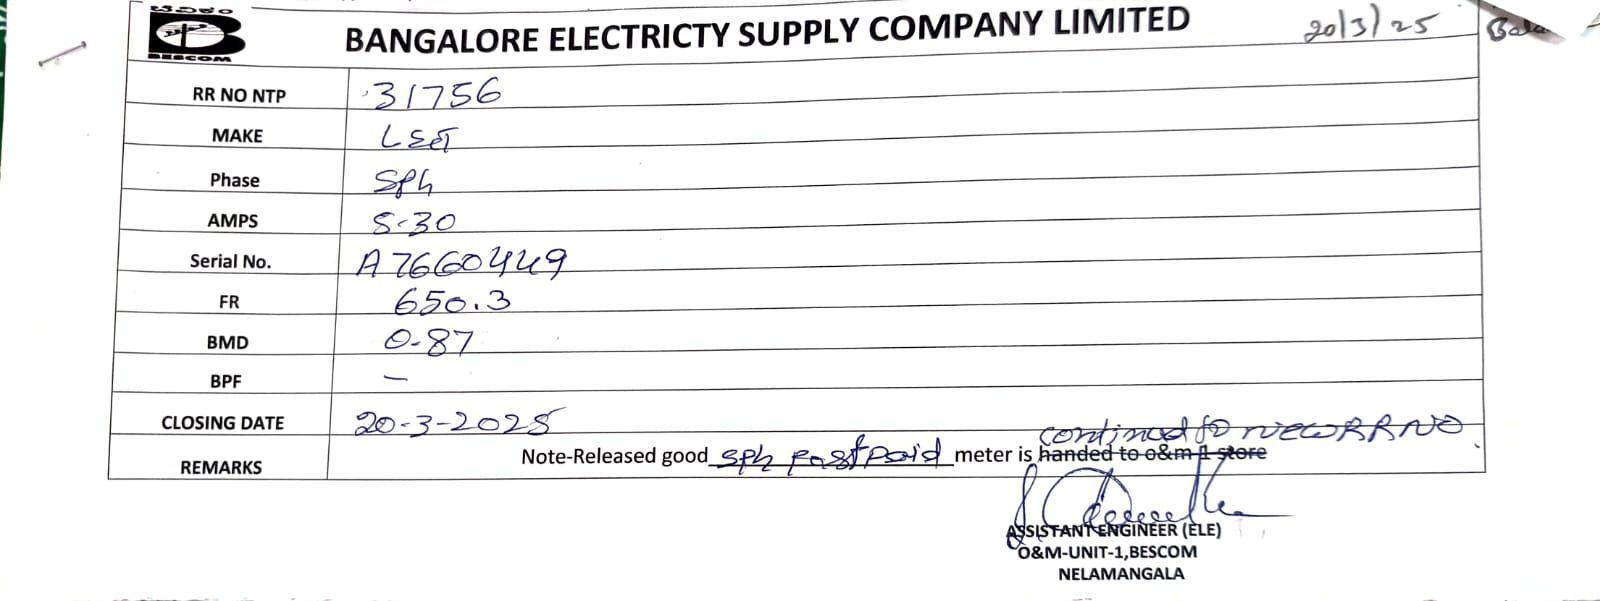 ಬೆವಿಕಂ
BESCOM
BANGALORE ELECTRICTY SUPPLY COMPANY LIMITED
20/3/25
RR NO NTP 31756
MAKE L&T
Phase SPh
AMPS 5-30
Serial No. A7660449
FR 650.3
BMD 0-87
BPF -
CLOSING DATE 20-3-2025
continued to NEW RR NO.
REMARKS Note-Released good SPh PostPaid meter is handed to o&m-1 store
ASSISTANT ENGINEER (ELE)
O&M-UNIT-1,BESCOM
NELAMANGALA